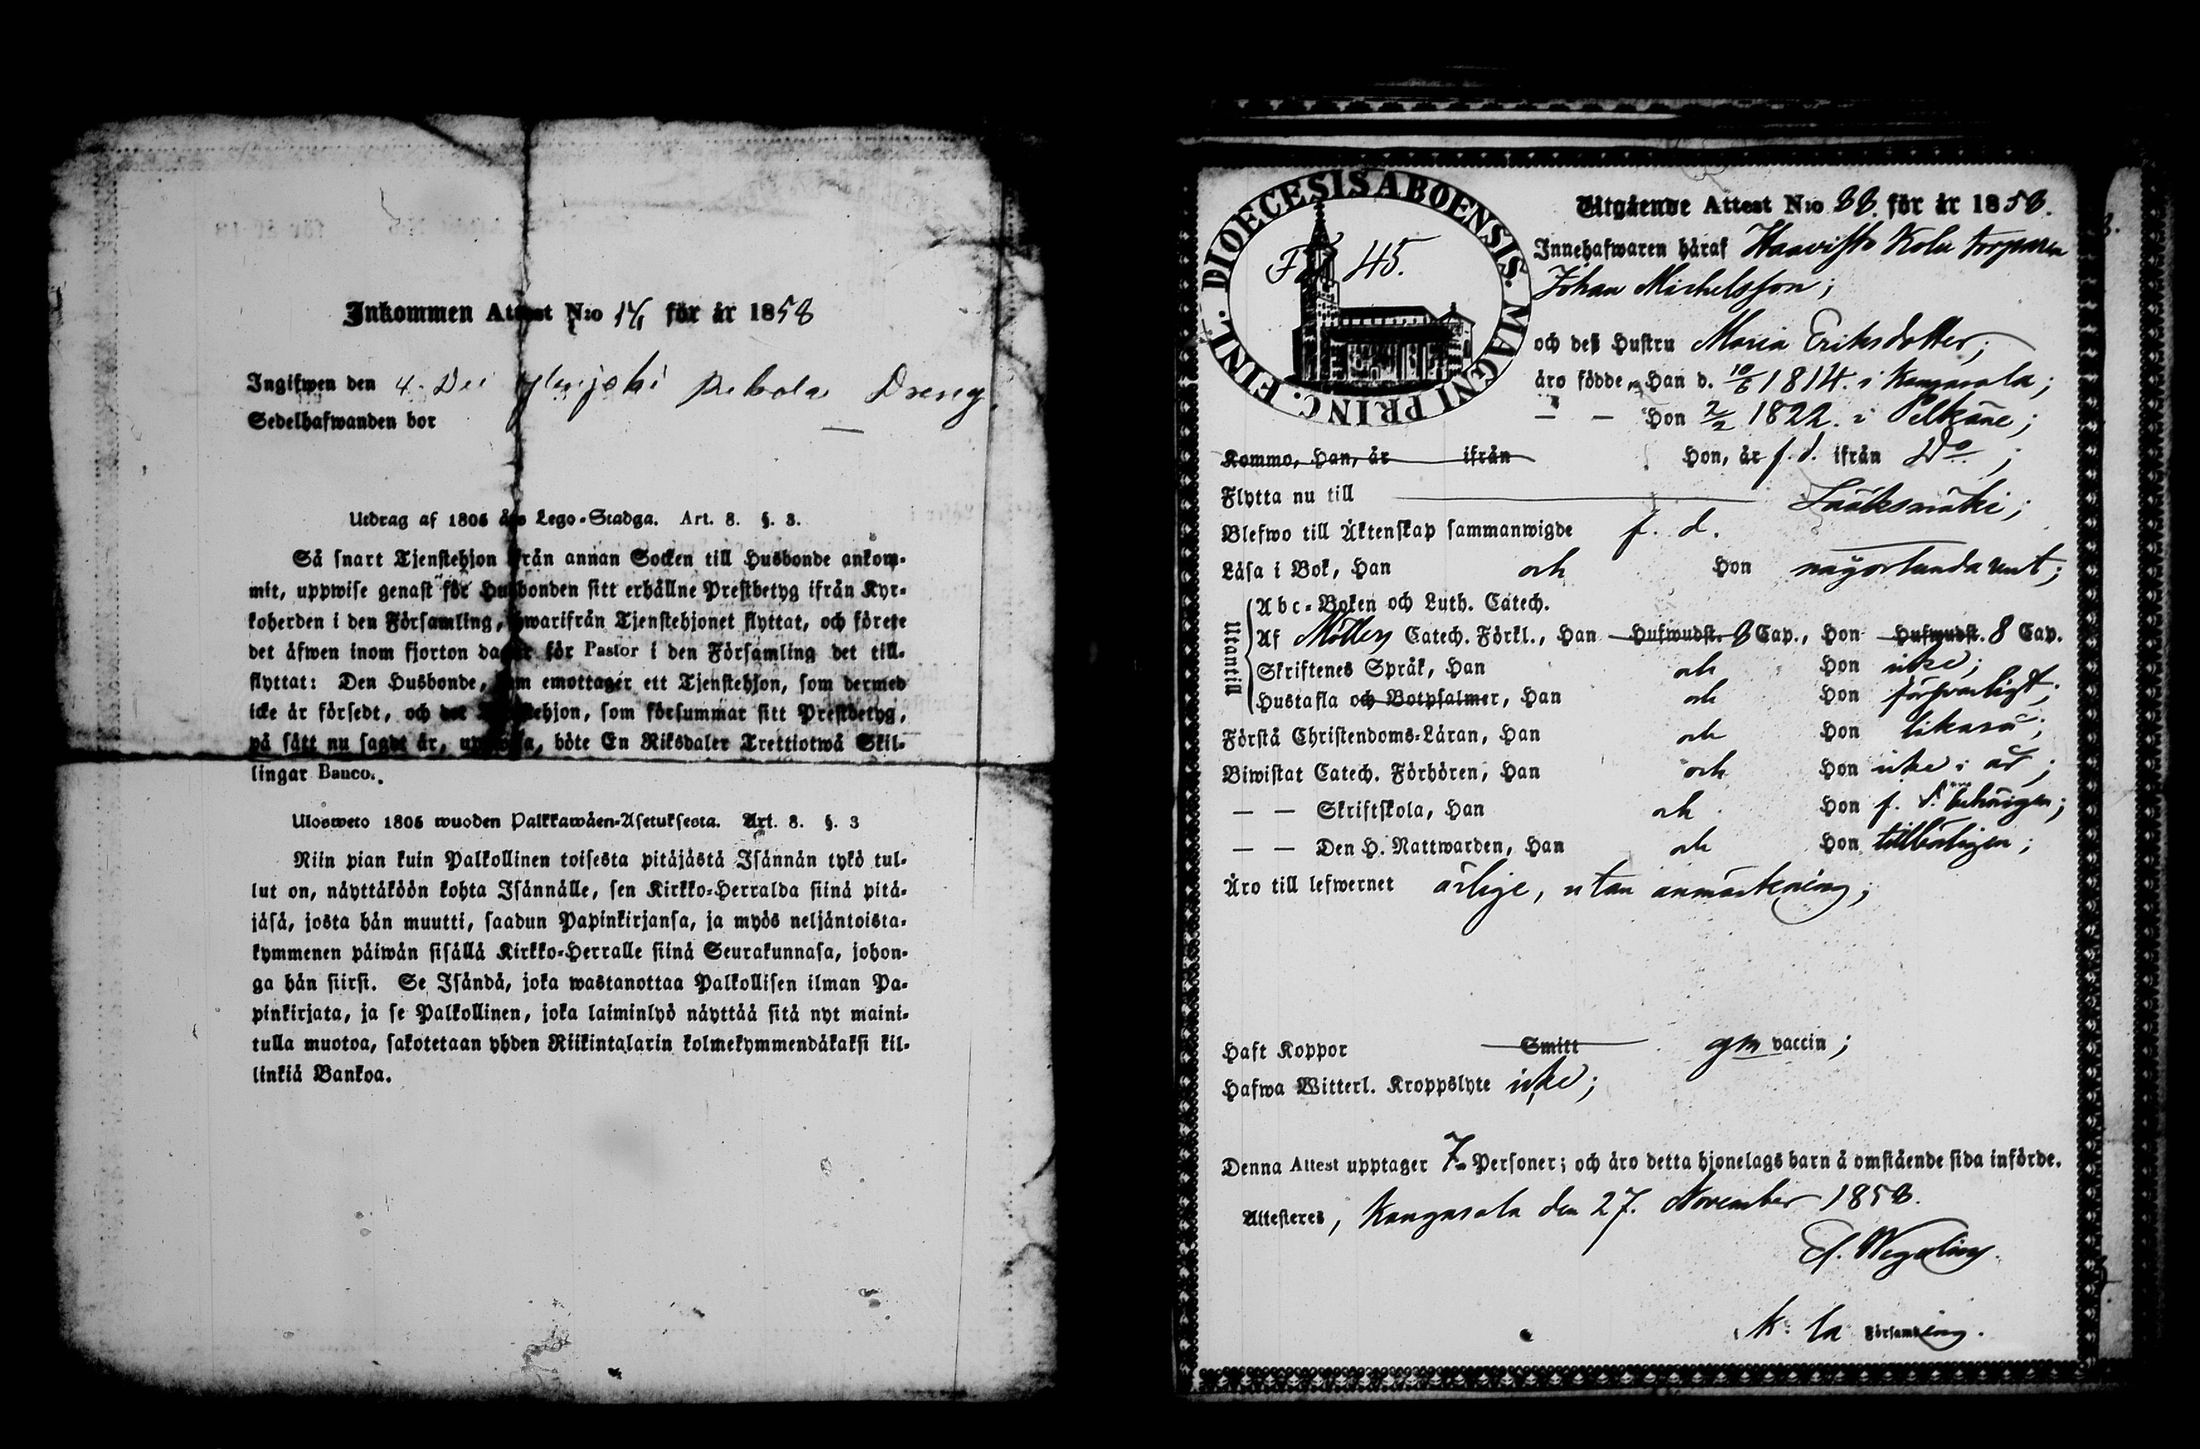 Inkommen Attest N:o för år 1858
Ingifwen den 4. Dec Dreng
Sedelhafwanden bor
Utdrag af 1805 års Lego-Stadga. Art. 8. §. 3.
Så snart Tjenstehjon ifrån annan Socken till Husbonde ankom-
mit, uppwise genast för Husbonden sitt erhållne Prestbetyg ifrån Kyr-
koherden i den Församling, hwarifrån Tjenstehjonet flyttat, och förete
det äfwen inom fjorton dagar för Pastor i den Församling det till-
flyttat: Den Husbonde, som emottager ett Tjenstehjon, som dermed
icke är försedt, och det Tjenstehjon, som försummar sitt Prestbetyg,
på sätt nu sagdt är, uppwisa, böte En Riksdaler Trettiotwå Skil-
lingar Banco.
Ulosweto 1805 wuoden Palkkawäen-Asetuksesta. Art. 8. §. 3
Niin pian kuin Palkollinen toisesta pitäjästä Isännän tykö tul-
lut on, näyttäköön kohta Isännälle, sen Kirkko-Herralda siinä pitä-
jäsä, josta hän muutti, saadun Papinkirjansa, ja myös neljäntoista-
kymmenen päiwän sisällä Kirkko-Herralle siinä Seurakunnasa, johon-
ga hän siirsi. Se Isändä, joka wastanottaa Palkollisen ilman Pa-
pinkirjata, ja se Palkollinen, joka laiminlyö näyttää sitä nyt maini-
tulla muotoa, sakotetaan yhden Riikintalarin kolmekymmendäkaksi kil-
linkiä Bankoa.
DIOECESIS ABOENSIS. MAGNI PRINC. FINL.
45.
Utgående Attest N:o 88. för år 1858.
Innehafwaren häraf Haavisto Kolu torparen
Johan Michelsson;
och deß Hustru Maria Eriksdotter;
äro födde, Han d. 10/6 1814. i Kangasala;
— — Hon 2/2 1822. i Pelkäne;
Kommo, Han, år ifrån Hon, år f. d. ifrån Do;
Flytta nu till Sääksmäki;
Blefwo till Äktenskap sammanwigde f. d.
Läsa i Bok, Han och Hon någorlunda rent;
Utantill
Abc-Boken och Luth. Catech.
Af Möllers Catech. Förkl., Han Hufwudst. 8 Cap., Hon Hufwudst. 8 Cap.
Skriftenes Språk, Han och Hon icke;
Hustafla och Botpsalmer, Han och Hon försvarligt;
Förstå Christendoms-Läran, Han och Hon likaså;
Biwistat Catech. Förhören, Han och Hon icke i år;
— — Skriftskola, Han och Hon f. d. behörigen;
— — Den H. Nattwarden, Han och Hon tillbörligen;
Äro till lefwernet ärlige, utan anmärkning;
Haft Koppor Smitt gm vaccin;
Hafwa Witterl. Kroppslyte icke;
Denna Attest upptager 7 Personer; och äro detta hjonelags barn å omstående sida införde.
Attesteres, Kangasala den 27. November 1858.
K: la Församling.